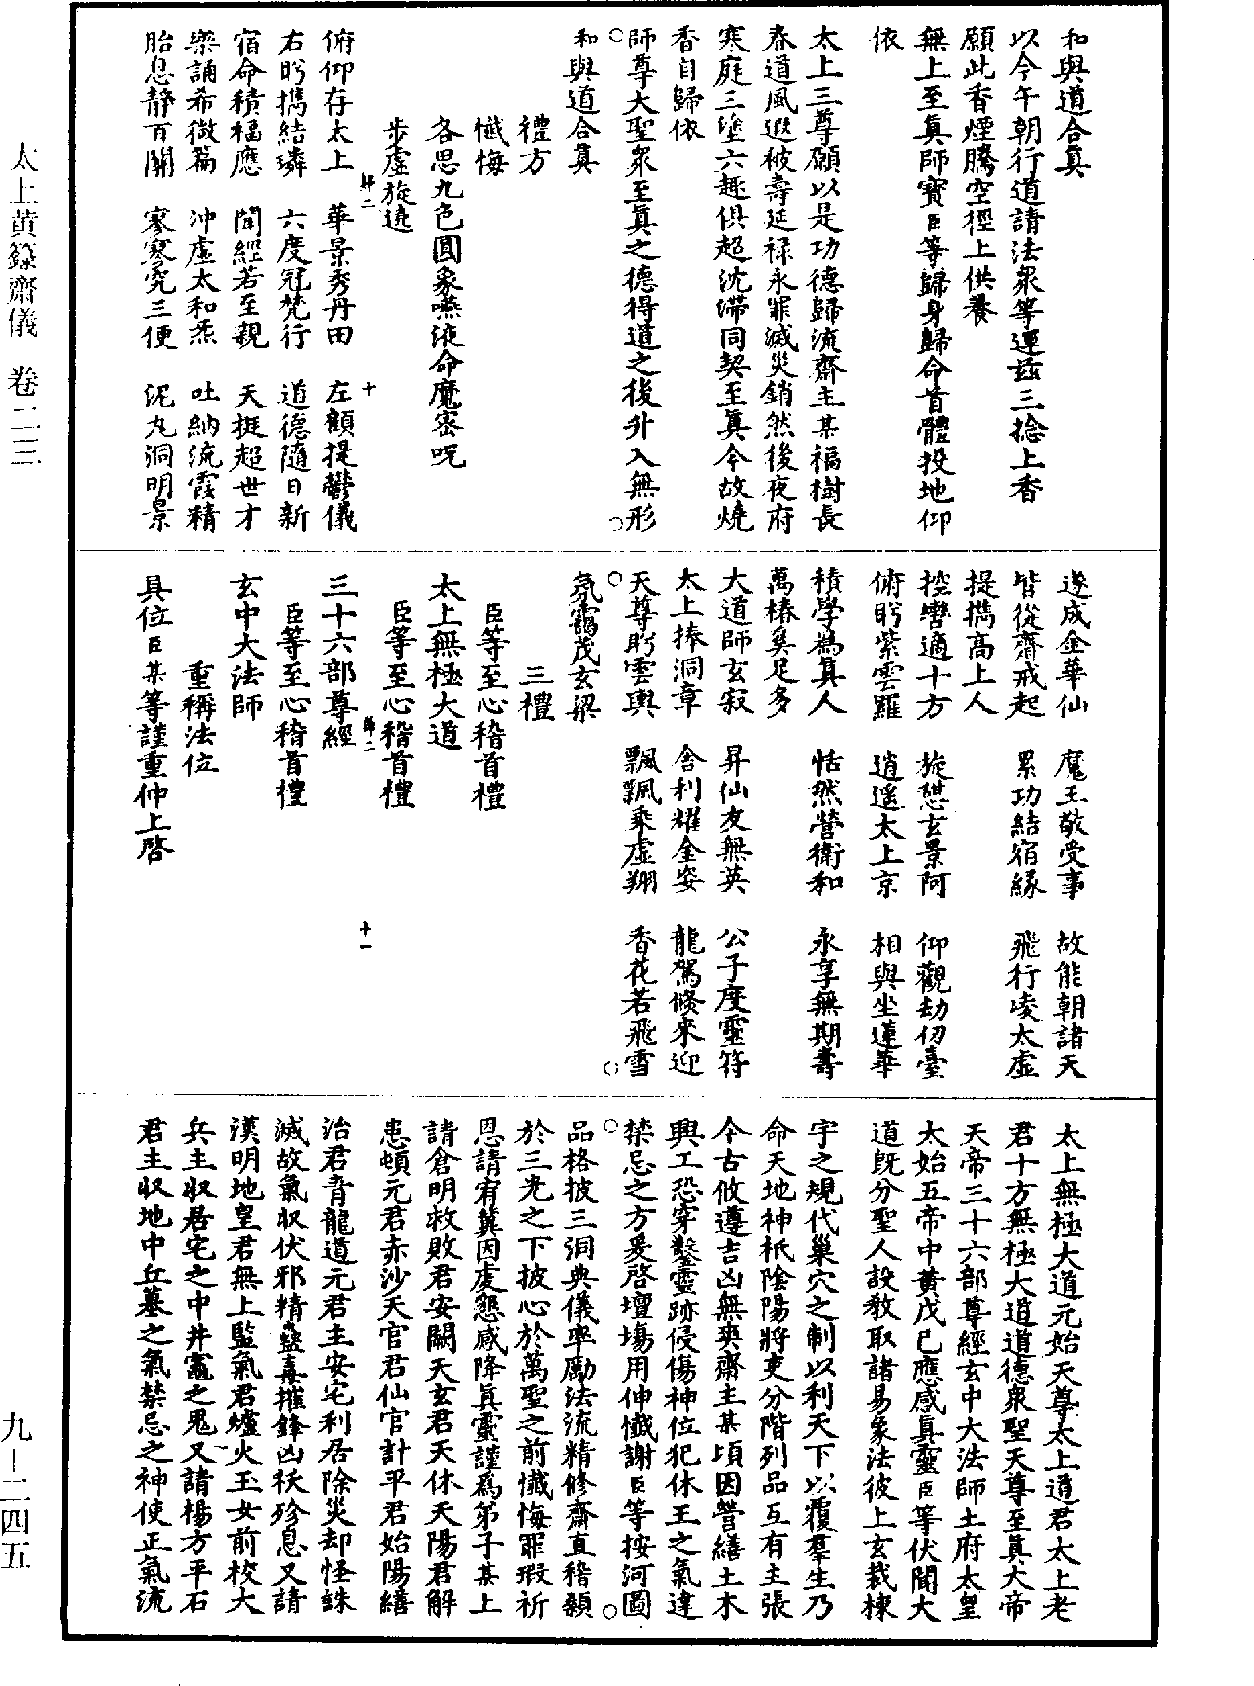 和與道合真
以今午朝行道請法衆等運茲三捻上香
願此香煙騰空徑上供養
無上至真師寶臣等歸身歸命首體投地仰
依
太上三尊願以是功德歸流齋主某福樹長
春道風遐被壽延禄永罪滅災銷然後夜府
寒庭三塗六趣俱超沈滯同契至真今故燒
香自歸依
師尊大聖衆至真之德得道之後升入無形
和與道合真
禮方
懺悔
各思九色圓象嚥液命魔密呪
步虛旋遶
俯仰存太上　華景秀丹田　左顧提鬱儀
右眄擕結璘　六度冠梵行　道德隨日新
宿命積福應　聞經若至親　天挺超世才
樂誦希微篇　沖虛太和炁　吐納流霞精
胎息静百關　寥寥究三便　泥丸洞明景
遂成金華仙　魔王敬受事　故能朝諸天
皆從齋戒起　累功結宿緣　飛行凌太虛
提擕高上人
控轡適十方　旋憩玄景阿　仰觀劫仞臺
俯眄紫雲羅　逍遥太上京　相與坐蓮華
積學爲真人　恬然營衛和　永享無期壽
萬椿奚足多
大道師玄寂　昇仙友無英　公子度靈符
太上捧洞章　舍利耀金姿　龍駕倏來迎
天尊眄雲輿　飄飄乘虛翔　香花若飛雪
氛靄茂玄梁
三禮
臣等至心稽首禮
太上無極大道
臣等至心稽首禮
三十六部尊經
臣等至心稽首禮
玄中大法師
重稱法位
具位臣某等謹重伸上啓
太上無極大道元始天尊太上道君太上老
君十方無極大道道德衆聖天尊至真大帝
天帝三十六部尊經玄中大法師土府太皇
太始五帝中黄戊己應感真靈臣等伏聞大
道旣分聖人設教取諸易象法彼上玄裁棟
宇之規代巢穴之制以利天下以覆羣生乃
命天地神祇陰陽將吏分階列品互有主張
今古攸遵吉凶無爽齋主某頃因營繕土木
興工恐穿鑿靈跡侵傷神位犯休王之氣違
禁忌之方爰啓壇塲用伸懺謝臣等按河圖
品格披三洞典儀率勵法流精修齋直稽顙
於三光之下披心於萬聖之前懺悔罪瑕祈
恩請宥兾因虔懇感降真靈謹爲弟子某上
請倉明救敗君安闕天玄君天休天陽君解
患頓元君赤沙天官君仙官計平君始陽繕
治君青龍道元君主安宅利居除災却怪誅
滅故氣収伏邪精蠱毒摧鋒凶袄殄息又請
漢明地皇君無上監氣君爐火玉女前校大
兵主収居宅之中井竈之鬼又請楊方平石
君主収地中丘墓之氣禁忌之神使正氣流
太上黄籙齋儀　卷二三
九—二四五